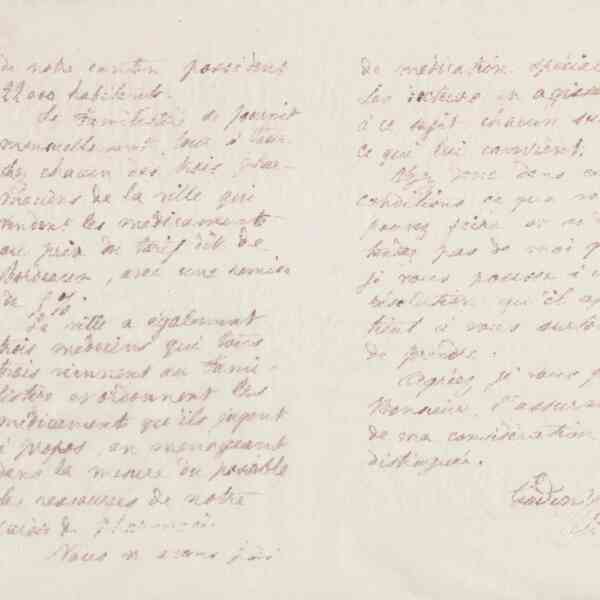 de notre canton possèdent
22 000 habitants.
Le Familistère se fournit
mensuellement, tour à tour
chez chacun des trois phar-
maciens de la ville qui
vendent les médicaments
au prix du tarif dit de
Bordeaux, avec une remise
de 5 %.
La ville a également
trois médecins qui tous
trois viennent au Fami-
listère et ordonnent les
médicaments qu'ils jugent
à propos, en ménageant
dans la mesure du possible
les ressources de notre
caisse de pharmacie.
Nous n'avons pas
de médication spécial
Les docteurs en agissent
à ce sujet chacun sui
ce qui lui convient.
Voyez donc dans ce
conditions ce que vo
pouvez faire et n'at
tendez pas de moi q
je vous pousse à u
résolution qu'il app
tient à vous surto
de prendre.
Agréez je vous p
Monsieur, l'assuran
de ma considération
distinguée.
Godin